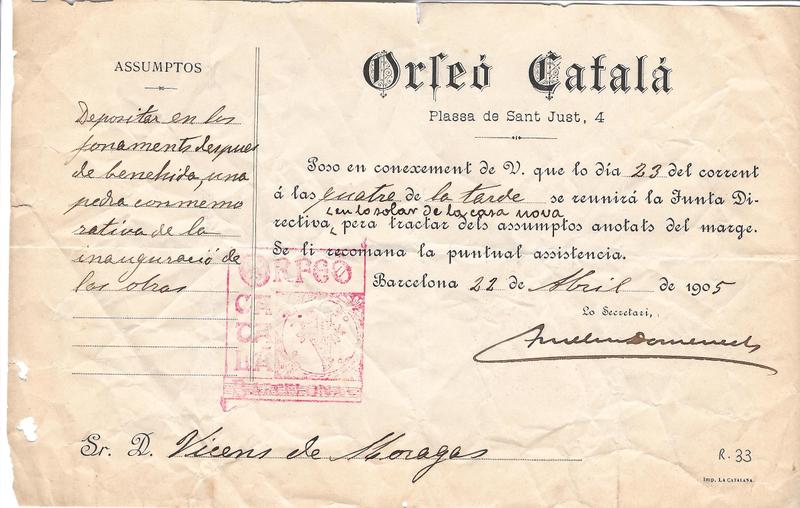 ASSUMPTOS
Depositar en los
fonaments despues
de benehida, una
pedra conmemo
rativa de la
inauguració de
las obras
Orfeó Catalá
Plassa de Sant Just, 4
Poso en conexement de V. que lo día 23 del corrent
á las quatre de la tarde se reunirá la Junta Di-
en lo solar de la casa nova
rectiva, pera tractar dels assumptos anotats del marge.
Se li recomana la puntual assistencia.
Barcelona 22 de Abril de 1905
Lo Secretari,
Domenech
ORFEÓ
CA
TA
LÁ
BARCELONA
Sr. D. Vicens de Moragas
R. 33
Imp. LA CATALANA.